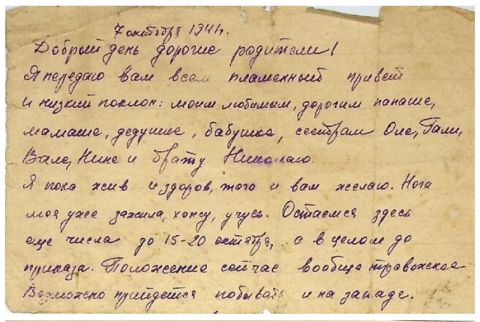 7 октября 1941г.
Добрый день дорогие родители!
Я передаю вам всем пламенный привет
и низкий поклон: моим любимым, дорогим папаше,
мамаше, дедушке, бабушке, сестрам Оле, Гале,
Вале, Нине и брату Николаю.
Я пока жив и здоров, того и вам желаю. Нога
моя уже зажила, хожу, учусь. Остаемся здесь
еще числа до 15-20 октября, а в целом до
приказа. Положение сейчас вообще тревожное
Возможно прийдется побывать и на западе.